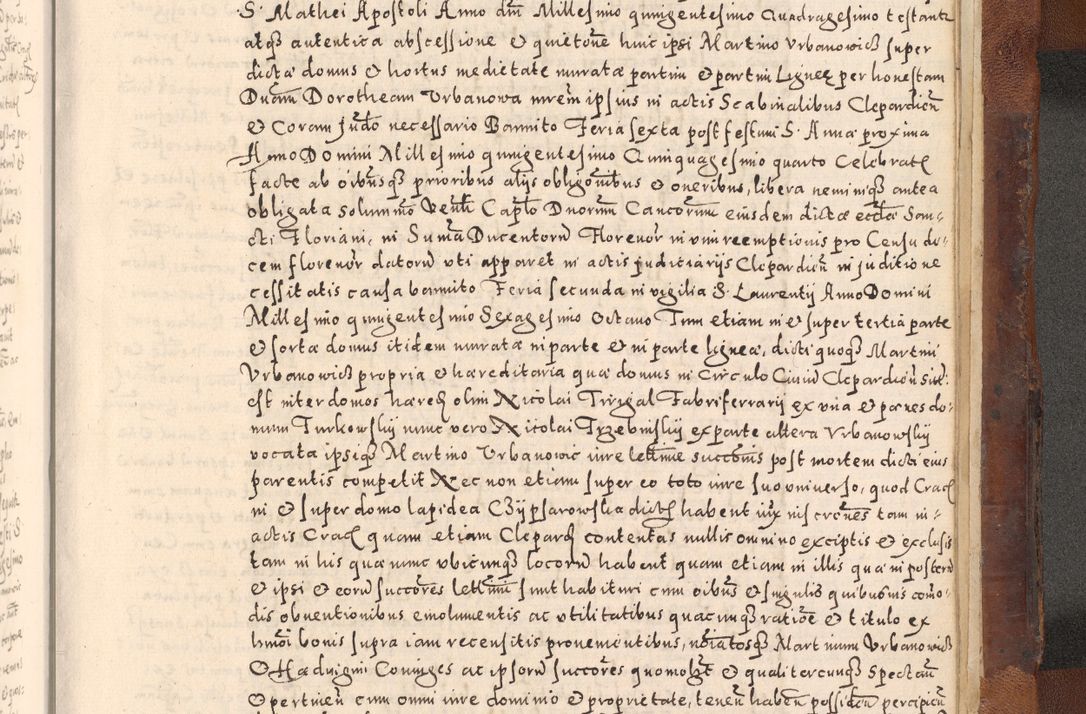 S. Mathei Apostoli Anno dm̃ Millesmio quingentesimo Quadragesimo testante
atqȝ autentica abscessione et quietoñe hinc ipsi Martino Vrbanowicz super
dictæ domus et hortus medietate muratæ partim et partim Ligneȩ per honestam
Dnam Dorotheam Vrbanowa mrẽm ipsius in actis Scabinalibus Clepardieñ
et Coram Judo necessario Bannito Feria sexta post festum S. Annæ proxima
Anno Domini Millesimo quingentesimo Quinquagesimo quarto Celebrat
facte ab oibusqȝ prioribus alijs obligonibus et oneribus, libera neminiqȝ antea
obligata solummo Venli Caplo Dnorum Cancorum eiusdem dictæ ecclæ San-
cti Floriani, in Suma Ducentorũ Florenor in vim reemptionis pro Censu de-
cem florenor datorũ vti apparet in actis judiciarijs Clepardieñ in juditio ne
cessitatis causa bannito Feria secunda in vigilia S. Laurentij Anno Domini
Millesimo quingentesimo Sexagesimo Octauo Tum etiam in et super tertia parte
et sorte domus itidem muratæ in parte et in parte ligneæ, dicti quoqȝ Martini
Vrbanowicz propria et hæreditaria quæ domus in Circulo Ciuiũ Clepardieñ Sita
est inter domos hæred olim Nicolai Trzgal Fabriferrarij ex vna et penes do-
mum Turkowskij nunc vero Nicolai Trzebinskij ex parte altera Vrbanowskij
vocata ipsiqȝ Martino Vrbanowic iure lettime succonis post mortem dicti eius
parentis competit Nec non etiam super eo toto iure suo vniuerso, quod Crac
in et super domo lapidea Czÿpsarowska dict habent iux inscrcones tam in
actis Crac quam etiam Clepard contentas nullis omnino exciptis et exclusis
tam in his quæ nunc vbicunqȝ locorũ habent quam etiam in illis quæ in posterũ
et ipsi et eorũ succores lettimi sunt habituri cum oibus et singulis quibusuis como-
dis obuentionibus emolumentis ac vtilitatibus quacunqȝ ratione et titulo ex
hmoi bonis supra iam recensitis prouenientibus, noiatosqȝ Martinum Vrbanowicz
et Hæduigim Coniuges ac ipsorũ succores quomolbt et qualitercunqȝ Spectañ
et pertineñ cum omni iure dominio et proprietate, teneñ habeñ possideñ percipieñ